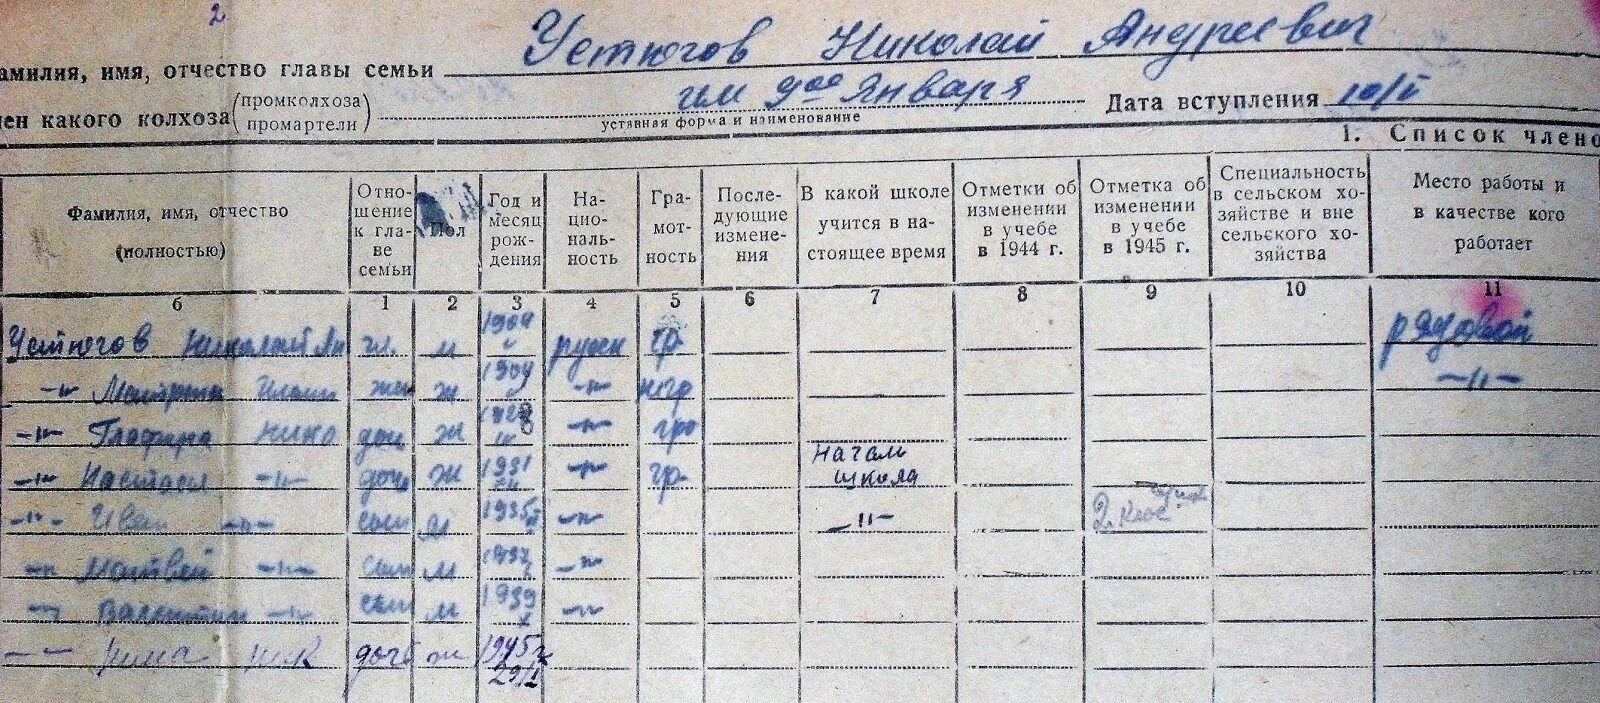 2
Устюгов Николай Андреевич
амилия, имя, отчество главы семьи
им 9ое Января
ен какого колхоза (промколхоза промартели)
уставная форма и наименование
Дата вступления 10/I
1. Список члено
Фамилия, имя, отчество (полностью)
Отно-шение к гла-ве семьи
Пол
Год и месяц рож-дения
На-цио-наль-ность
Гра-мот-ность
После-дующие измене-ния
В какой школе учится в на-стоящее время
Отметки об изменении в учебе в 1944 г.
Отметка об изменении в учебе в 1945 г.
Специальность в сельском хо-зяйстве и вне сельского хо-зяйства
Место работы и в качестве кого работает
б 1 2 3 4 5 6 7 8 9 10 11
Устюгов Николай Ан гл. м 1904 гр. рядовой
-"- ж 1904 -"- нгр -"-
-"- Глафира Нико доч ж -"- гр
-"- Настась -"- дочь ж 1931 -"- гр. Началь школа
-"- Иван -"- сын м 1935 -"- -"- 2 клас
-"- Матвей -"- сын м 1937 -"-
-"- Валентин -"- сын м 1939 X -"-
-"- Ник дочь ж 1945 г